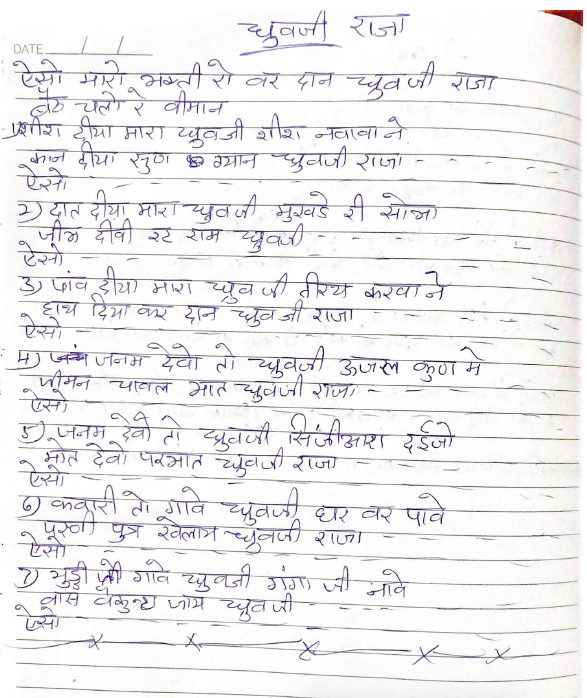 ध्रुवजी राजा
DATE
ऐसो मारो भक्ती रो वर दान ध्रुवजी राजा
बैठ चलो रे वीमान
1) शीश दीया मारा ध्रुवजी शीश नवावा ने
कान दीया सुण ग्यान ध्रुवजी राजा
ऐसो
2) दात दीया मारा ध्रुवजी मुखडे री सोभा
जीभ दीवी रट राम ध्रुवजी
ऐसो
3) पांव दीया मारा ध्रुवजी तीरथ करवा ने
हाथ दिया कर दान ध्रुवजी राजा
ऐसो
4) जनम देवो तो ध्रुवजी ऊजल कुण मे
जीमन चावल भात ध्रुवजी राजा
ऐसो
5) जनम देवो तो ध्रुवजी सिंजीआरा दईजो
मोत देवो परभात ध्रुवजी राजा
ऐसो
6) कवारी तो गावे ध्रुवजी घर वर पावे
परणी पुत्र खेलाय ध्रुवजी राजा
ऐसो
7) बुड्ढी गावे ध्रुवजी गंगा जी नावे
वास वैकुन्ठ जाय ध्रुवजी
ऐसो